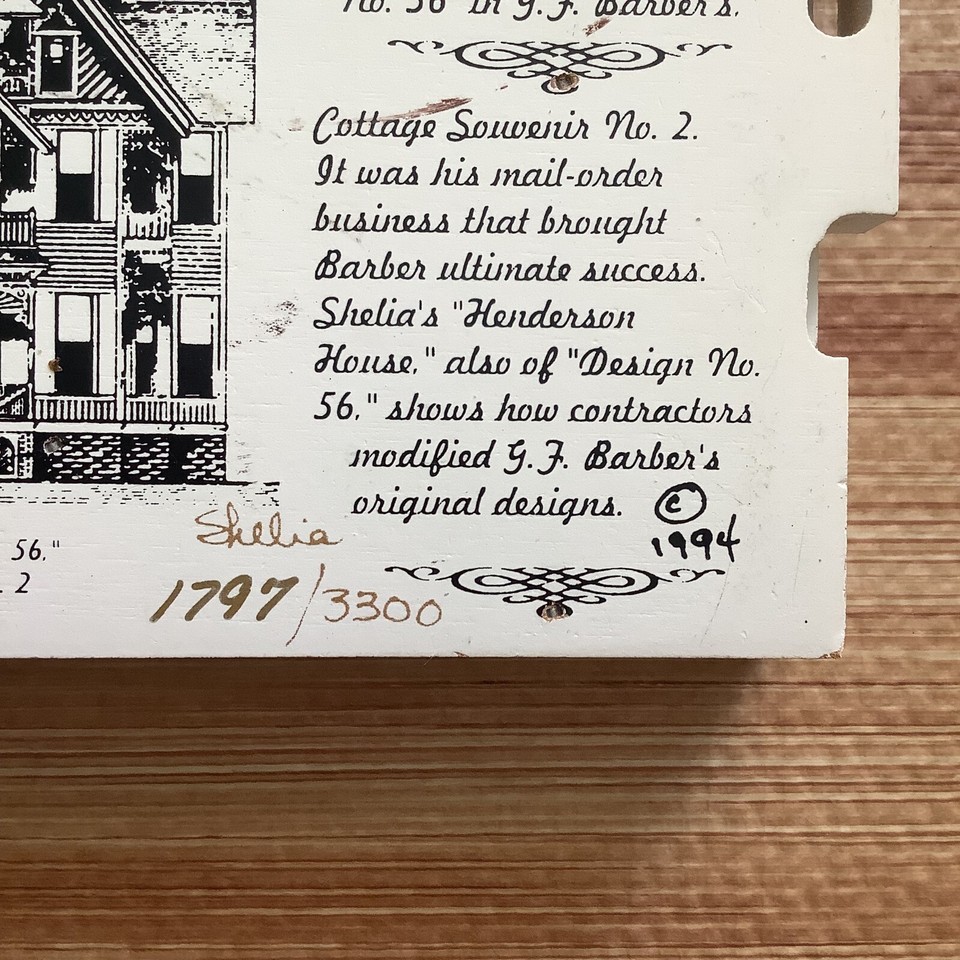 No. 56" in G.F. Barber's.
Cottage Souvenir No. 2.
It was his mail-order
business that brought
Barber ultimate success.
Shelia's "Henderson
House," also of "Design No.
56," shows how contractors
modified G.F. Barber's
original designs. ©
1994
Shelia
56."
. 2
1797/3300